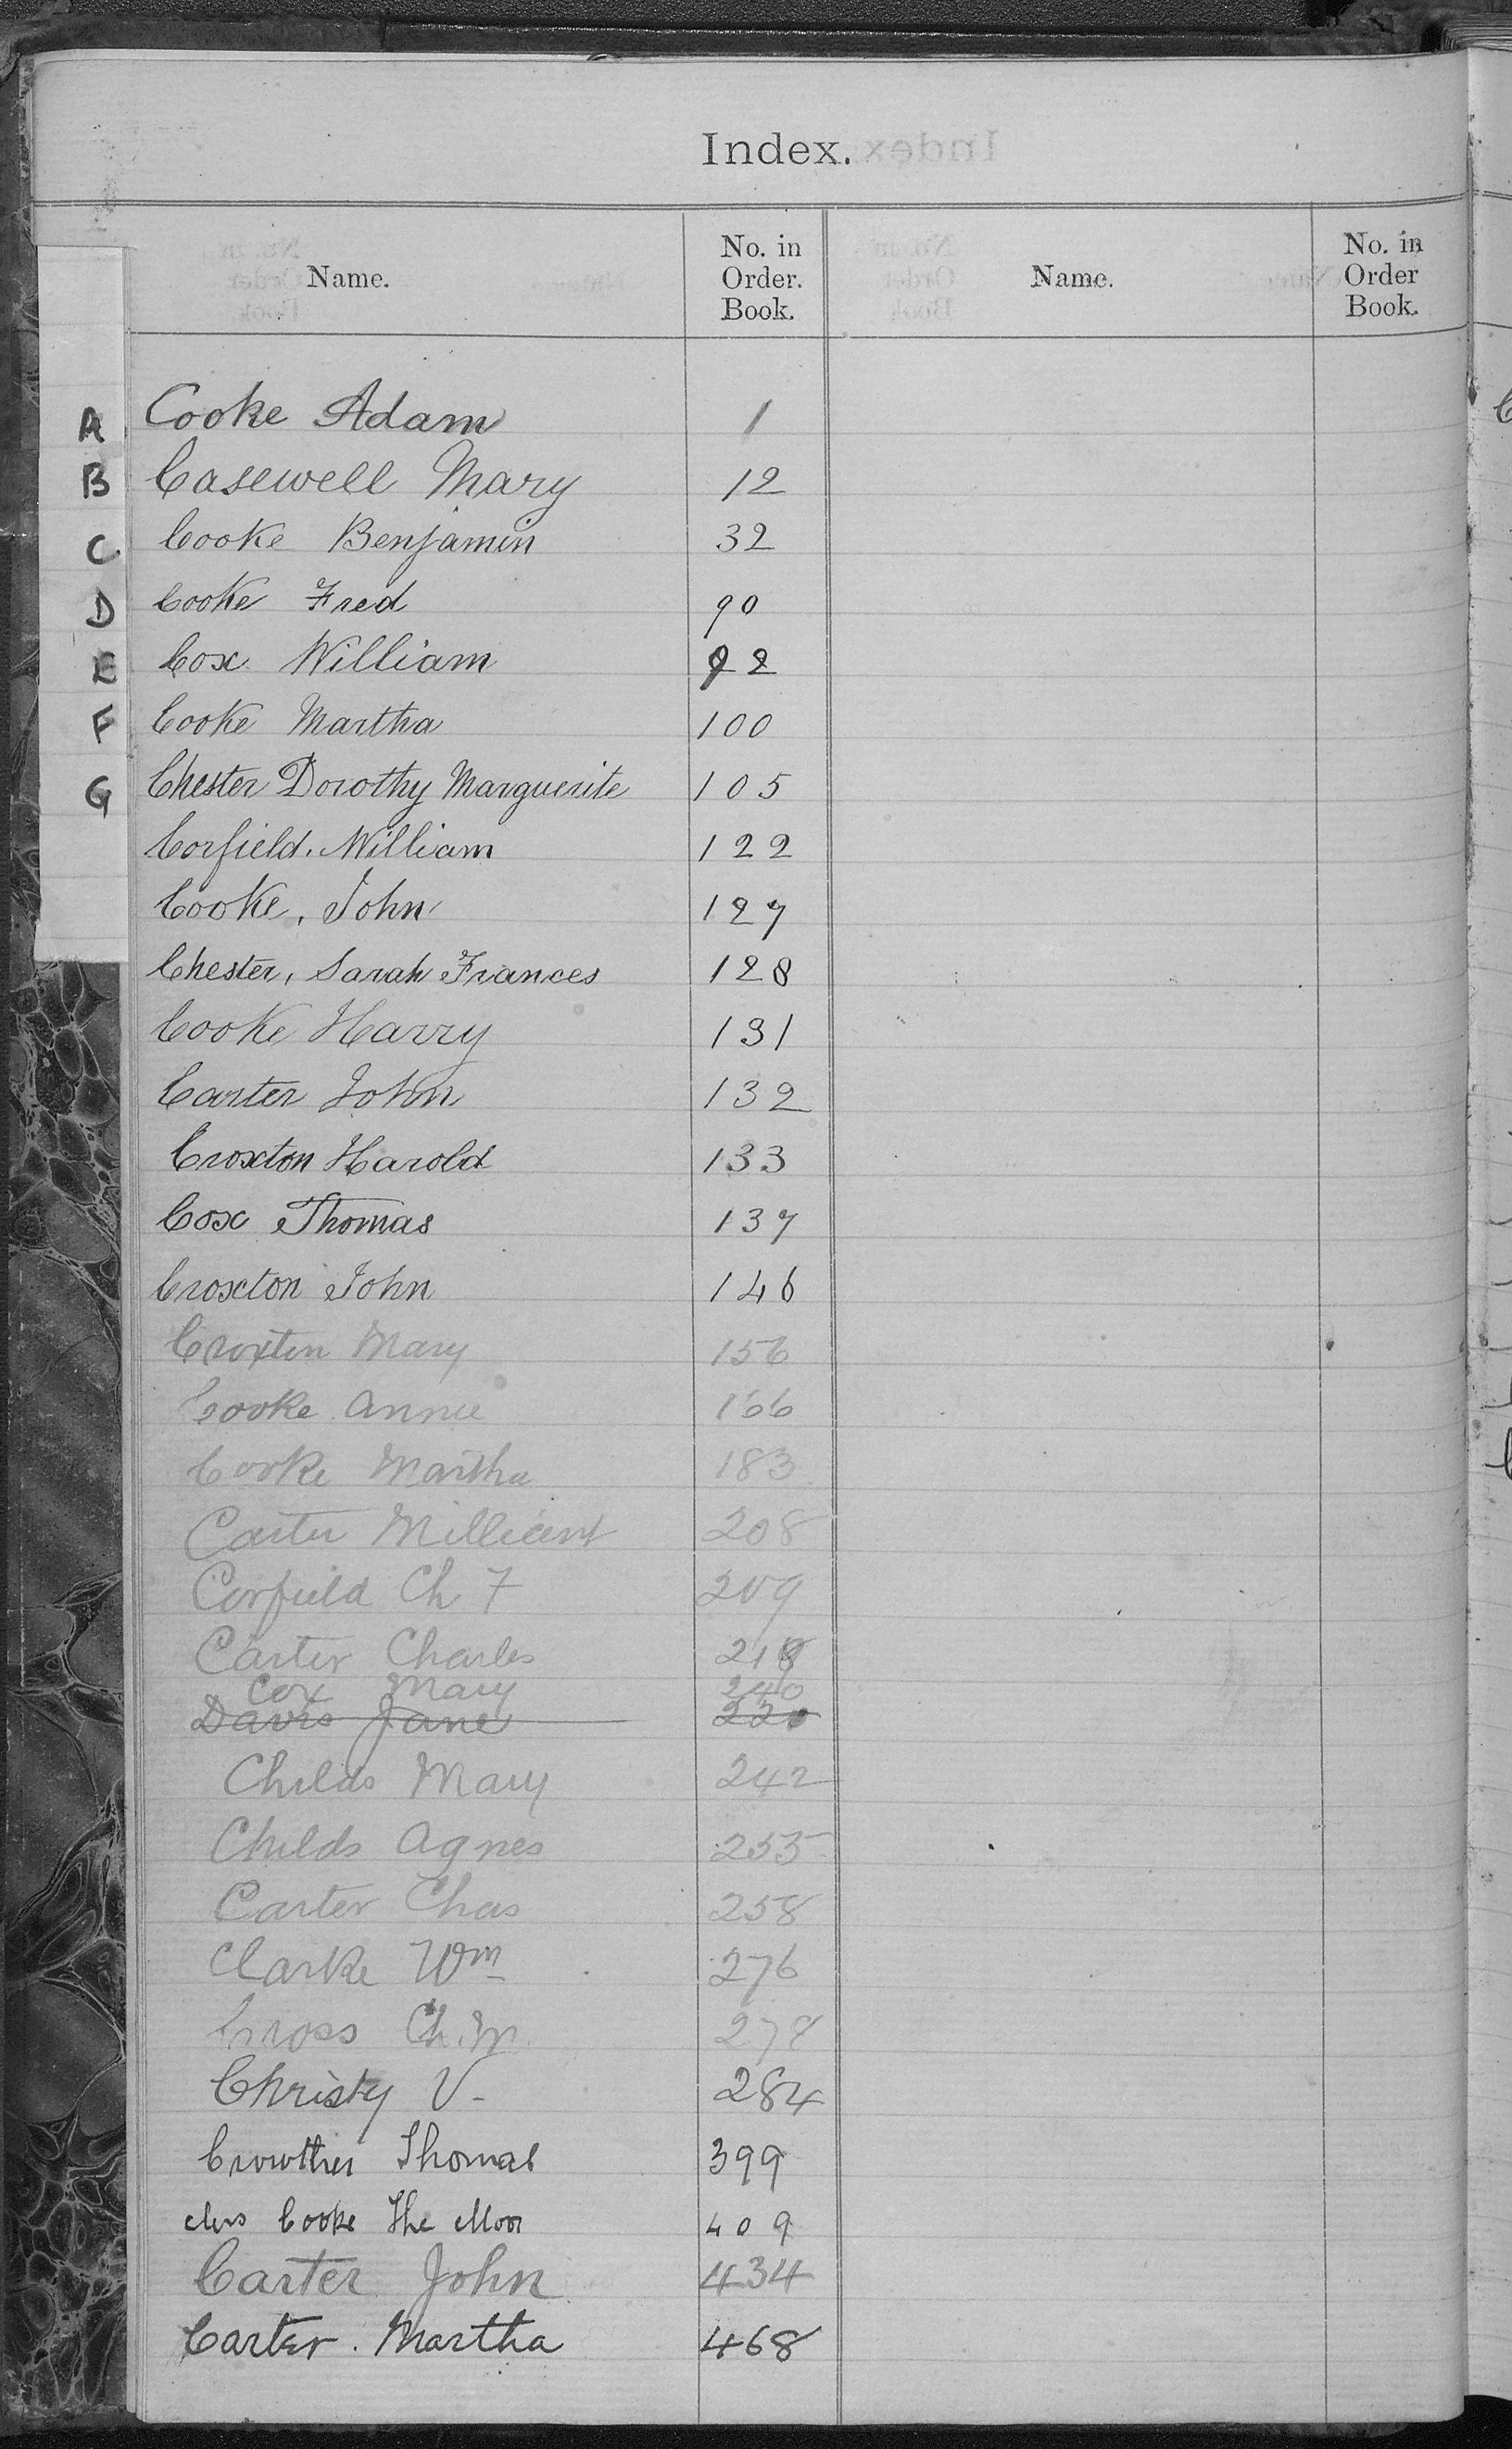 Index.
Name. No. in Order. Book. Name. No. in Order Book.
A Cooke Adam 1
B Casewell Mary 12
C Cooke Benjamin 32
D Cooke Fred 90
E Cox William 92
F Cooke Martha 100
G Chester Dorothy Marguerite 105
Corfield. William 122
Cooke, John 127
Chester, Sarah Frances 128
Cooke Harry 131
Carter John 132
Croxton Harold 133
Cox Thomas 137
Croxton John 146
Croxton Mary 156
Cooke Annie 166
Cooke Martha 183
Carter Millicent 208
Corfield Ch F 209
Carter Charles 218
Cox Mary 240
Davis Jane 220
Childs Mary 242
Childs Agnes 255
Carter Chas 258
Clarke Wm 276
Cross Ch. M. 278
Christy V- 284
Crowther Thomas 399
Mrs Cooke The Moor 409
Carter John 434
Carter. Martha 468